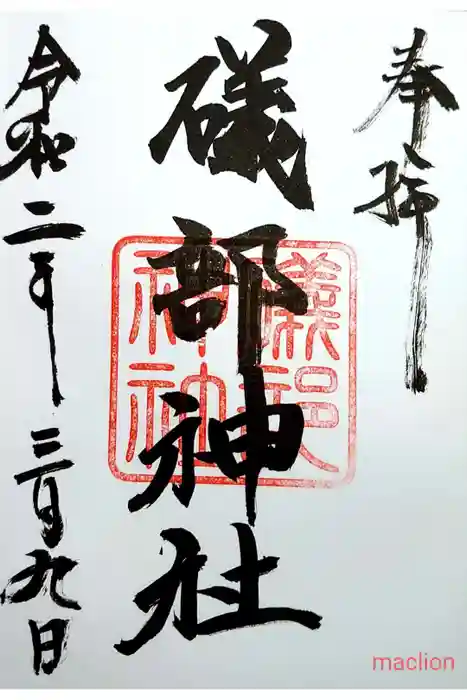 奉拝
礒部神社
令和二年三月九日
maclion